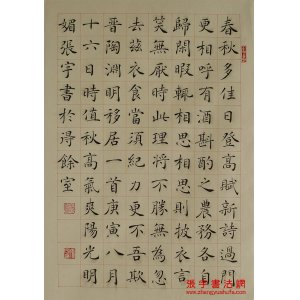 春秋多佳日登高賦新詩過門
更相呼有酒斟酌之農務各自
歸閑暇輒相思相思則披衣言
笑無厭時此理將不勝無為忽
去茲衣食當須紀力更不吾欺
晉陶淵明移居一首庚寅八月
十六日時值秋高氣爽陽光明
媚張宇書於得餘室
張宇書法網
www.zhangyushufa.com